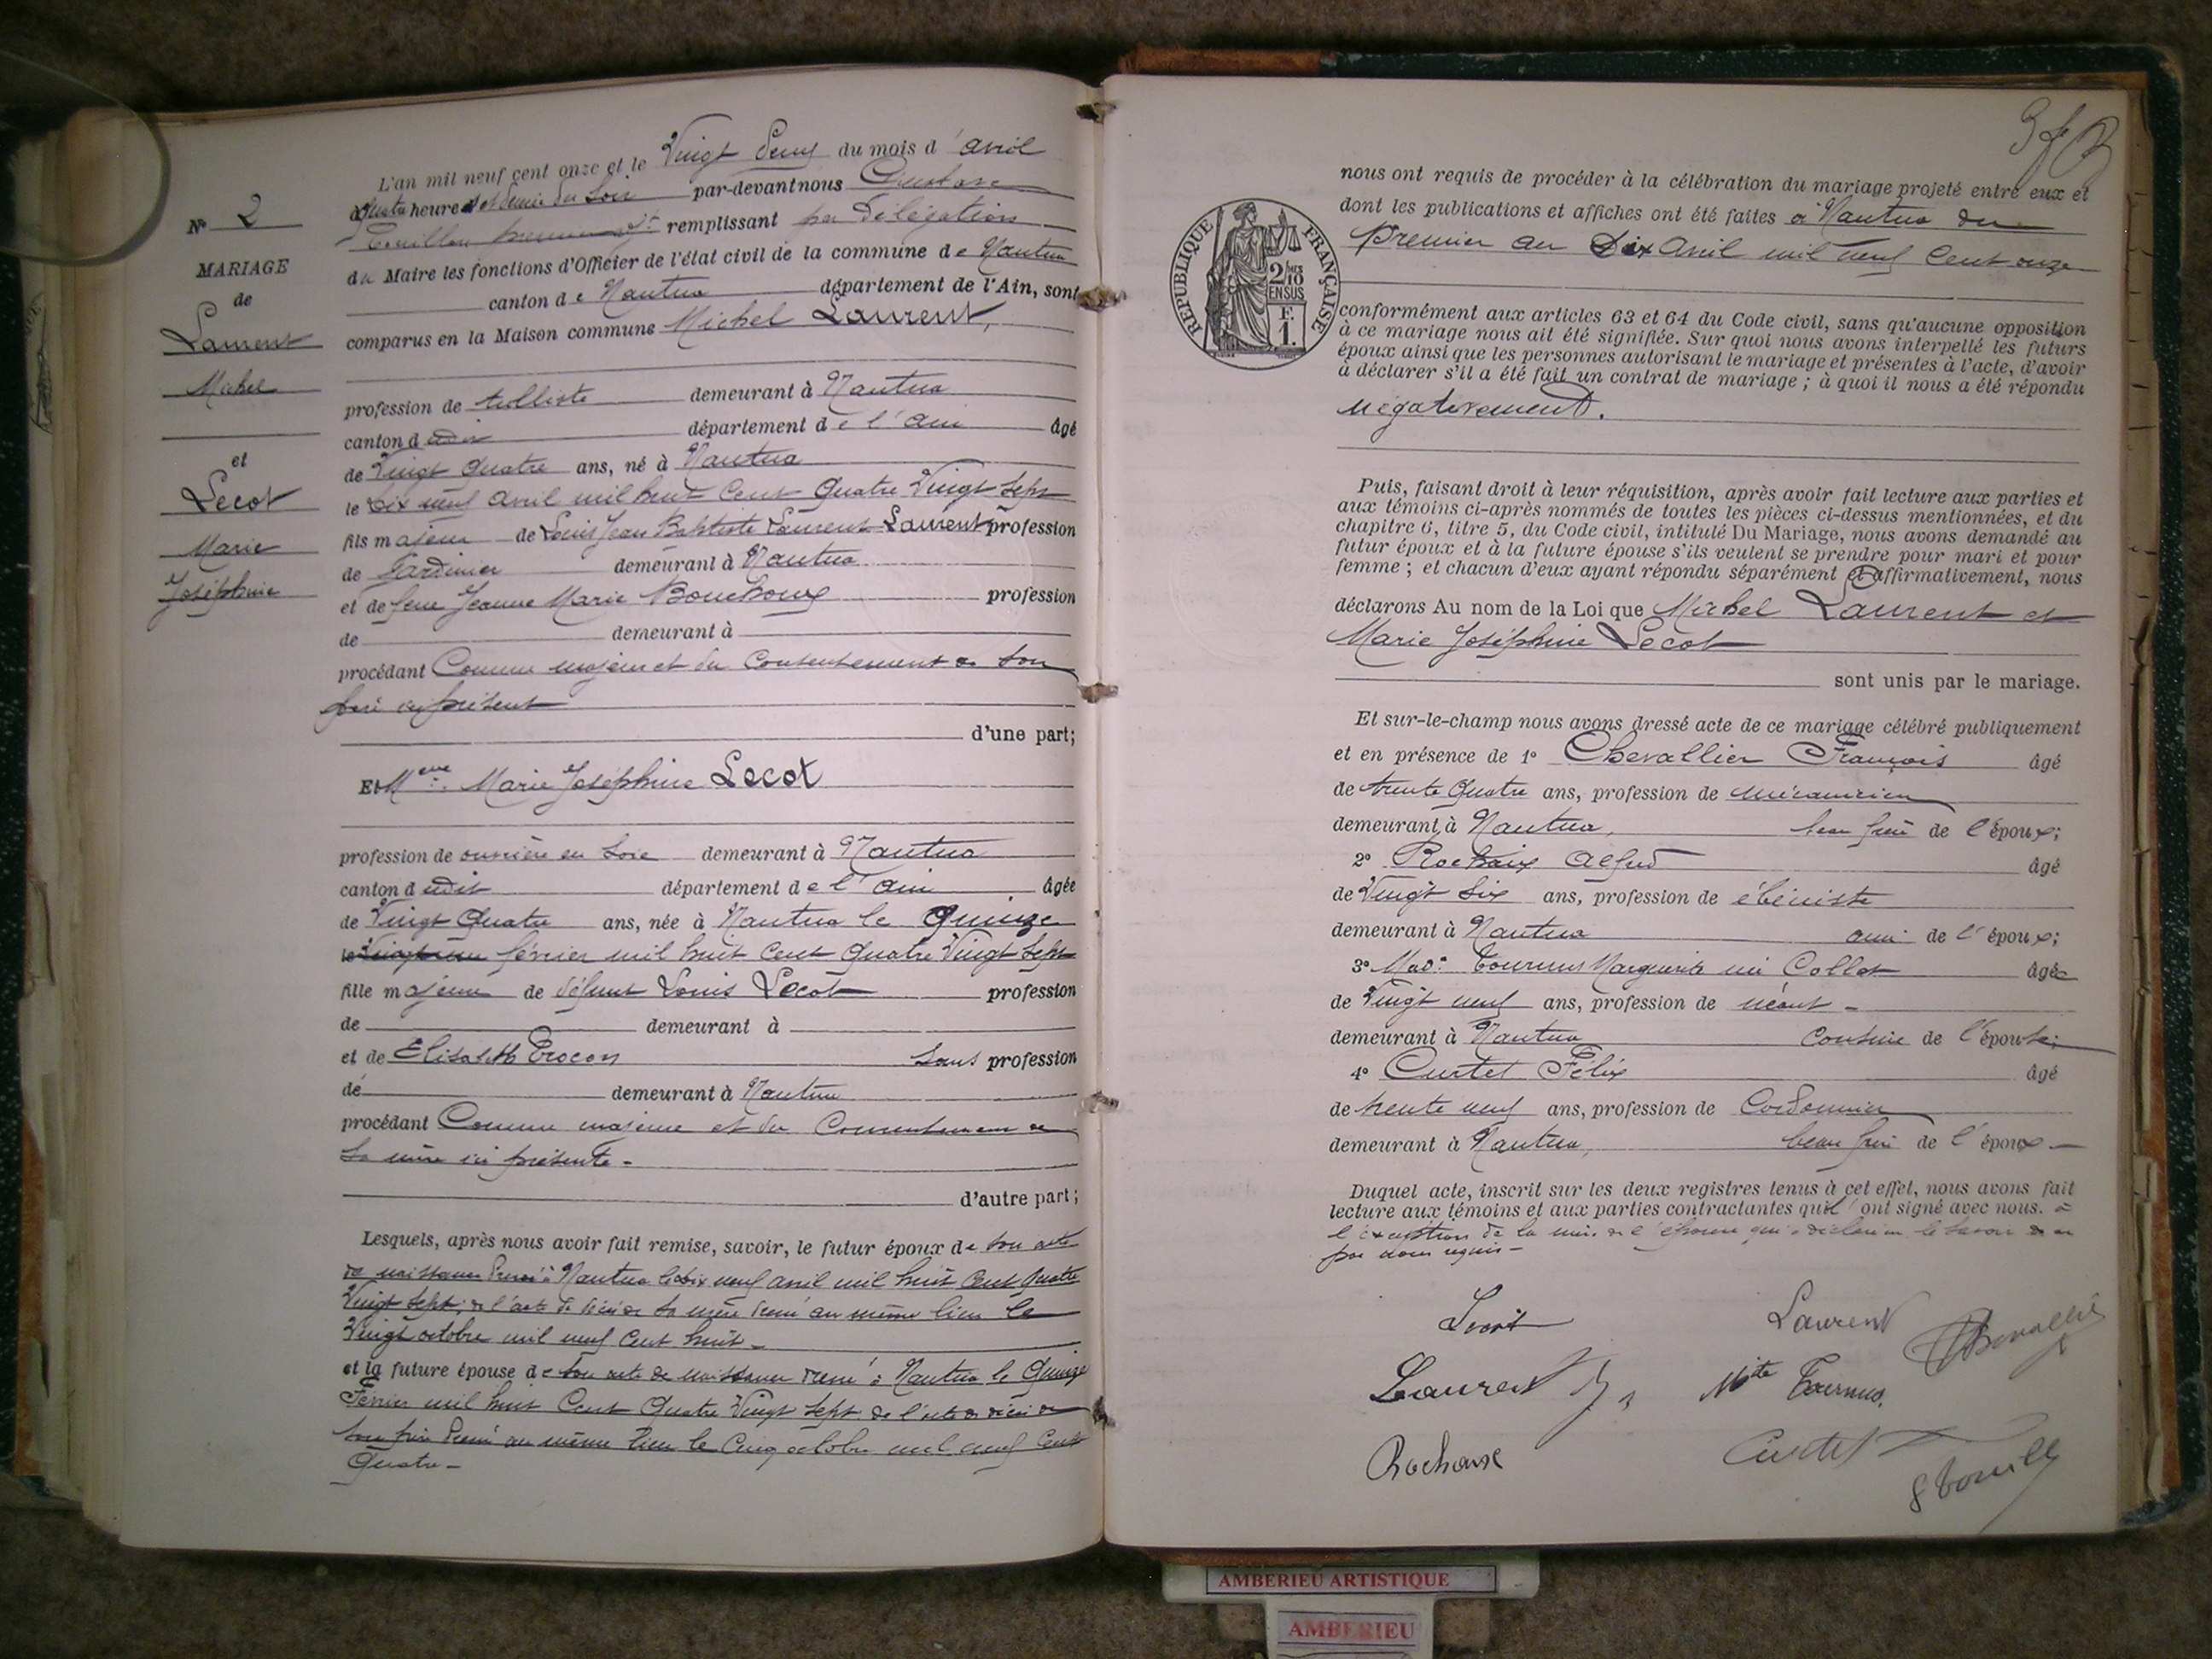 L'an mil neuf cent onze et le Vingt Deux du mois d'avril
à quatre heures et demie du Soir par-devant nous Gustave
remplissant par délégation
du Maire les fonctions d'Officier de l'état civil de la commune de Nantua
canton de Nantua département de l'Ain, sont
comparus en la Maison commune Michel Laurent,
N° 2
MARIAGE
de
Laurent
Michel
et
Lecot
Marie
Joséphine
profession de tulliste demeurant à Nantua
canton dudit département de l'Ain âgé
de Vingt quatre ans, né à Nantua
le dix neuf avril mil huit cent quatre Vingt sept
fils majeur de Louis Jean Baptiste Laurent Laurent profession
de Jardinier demeurant à Nantua
et de feue Jeanne Marie Bouchoux profession
de demeurant à
procédant Comme majeur et du Consentement de son
père ici présent
d'une part;
Et Melle Marie Joséphine Lecot
profession de ouvrière en soie demeurant à Nantua
canton dudit département de l'Ain âgée
de Vingt quatre ans, née à Nantua le Quinze
le février mil huit cent quatre Vingt sept
fille majeure de défunt Louis Lecot profession
de demeurant à
et de Elisabeth Crocon sans profession
de demeurant à Nantua
procédant Comme majeure et du Consentement de
sa mère ici présente -
d'autre part;
Lesquels, après nous avoir fait remise, savoir, le futur époux de son acte
de naissance dressé à Nantua le dix neuf avril mil huit cent quatre
Vingt sept; de l'acte de décès de sa mère dressé au même lieu le
Vingt octobre mil neuf cent huit -
et la future épouse de son acte de naissance dressé à Nantua le Quinze
Février mil huit Cent Quatre Vingt sept de l'acte de décès de
son père dressé au même lieu le Cinq octobre mil neuf Cent
Quatre -
nous ont requis de procéder à la célébration du mariage projeté entre eux et
dont les publications et affiches ont été faites à Nantua du
premier au Dix avril mil neuf Cent onze
RÉPUBLIQUE FRANÇAISE
2/10
EN SUS
F.
1.
conformément aux articles 63 et 64 du Code civil, sans qu'aucune opposition
à ce mariage nous ait été signifiée. Sur quoi nous avons interpellé les futurs
époux ainsi que les personnes autorisant le mariage et présentes à l'acte, d'avoir
à déclarer s'il a été fait un contrat de mariage; à quoi il nous a été répondu
négativement.
Puis, faisant droit à leur réquisition, après avoir fait lecture aux parties et
aux témoins ci-après nommés de toutes les pièces ci-dessus mentionnées, et du
chapitre 6, titre 5, du Code civil, intitulé Du Mariage, nous avons demandé au
futur époux et à la future épouse s'ils veulent se prendre pour mari et pour
femme; et chacun d'eux ayant répondu séparément et affirmativement, nous
déclarons Au nom de la Loi que Michel Laurent et
Marie Joséphine Lecot
sont unis par le mariage.
Et sur-le-champ nous avons dressé acte de ce mariage célébré publiquement
et en présence de 1° Chevallier François âgé
de trente quatre ans, profession de mécanicien
demeurant à Nantua, beau frère de l'époux;
2° Rochaix Alfred âgé
de Vingt six ans, profession de ébéniste
demeurant à Nantua ami de l'époux;
3° Made Tournus Marguerite née Collet âgée
de Vingt neuf ans, profession de néant -
demeurant à Nantua cousine de l'épouse;
4° Curtet Félix âgé
de trente neuf ans, profession de Cordonnier
demeurant à Nantua, beau frère de l'époux -
Duquel acte, inscrit sur les deux registres tenus à cet effet, nous avons fait
lecture aux témoins et aux parties contractantes qui l'ont signé avec nous. à
l'exception de la mère de l'épouse qui a déclaré ne le savoir de ce
par nous requis -
Lecot Laurent Chevallier
Laurent Mite Tournus.
Rochaix Curtet
AMBERIEU ARTISTIQUE
AMBERIEU